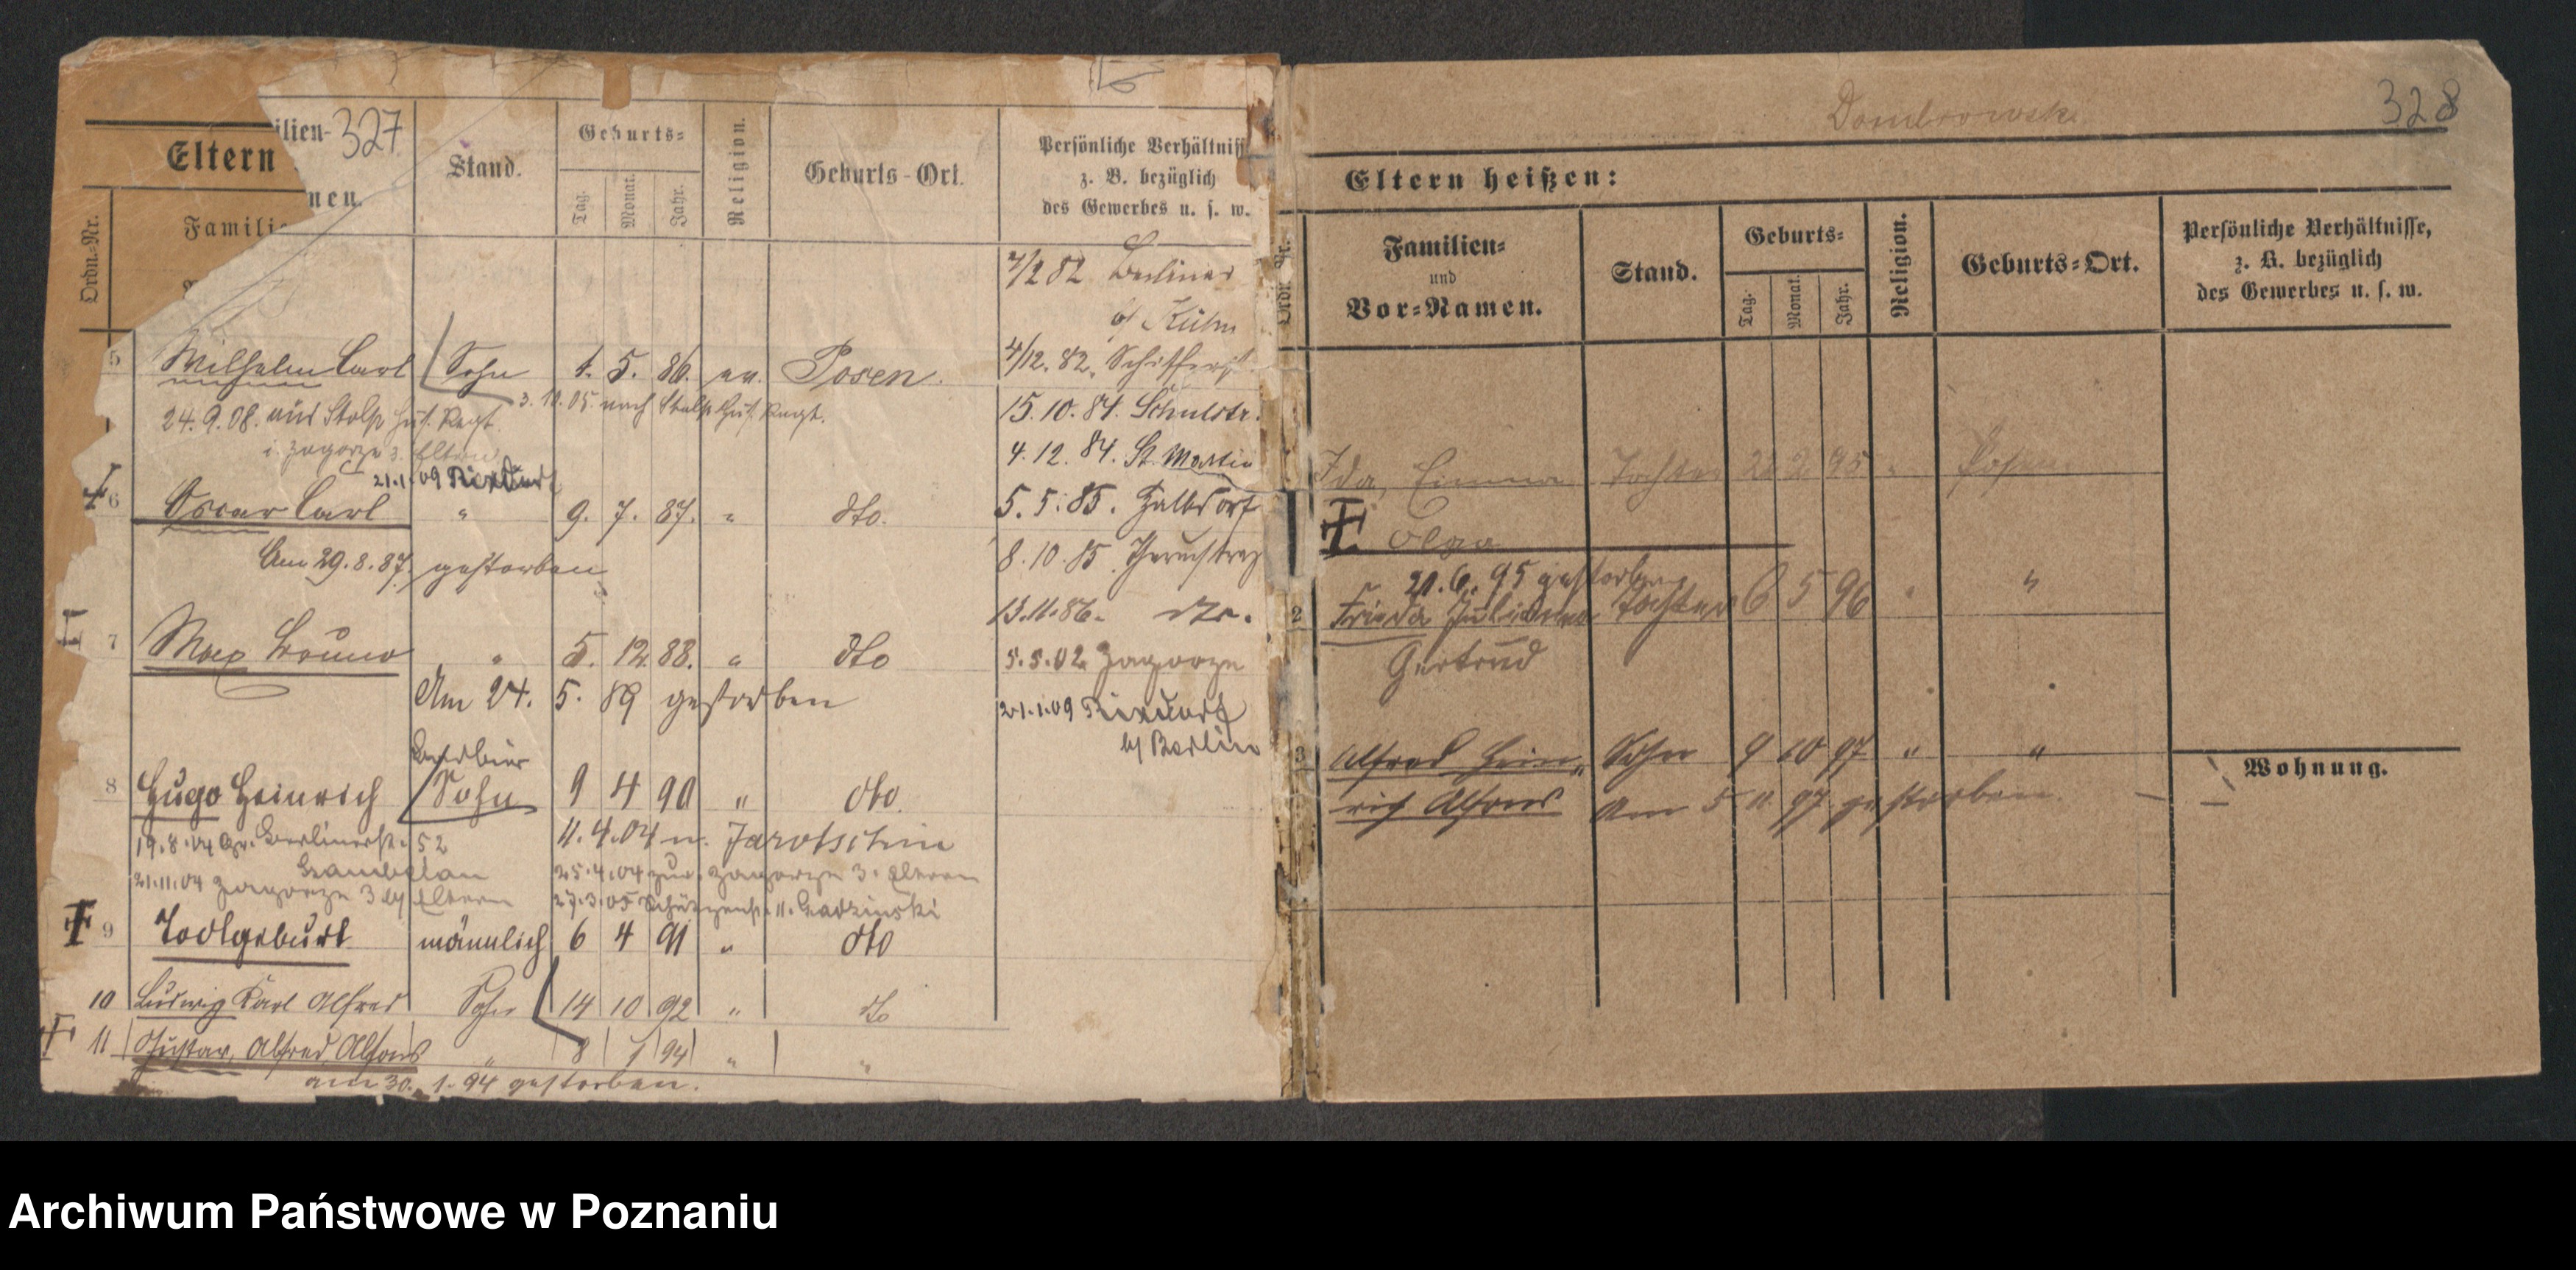 327
Eltern
ilien-
nen.
Ordn.-Nr.
Famili
Stand.
Geburts-
Tag.
Monat.
Jahr.
Religion.
Geburts-Ort.
Persönliche Verhältniss
z. B. bezüglich
des Gewerbes u. s. w.
7/2 82 Berliner
4/12. 82. Schifferst.
15.10.84. Schulstr.
4. 12. 84. St. Martin
5. 5. 85.
8. 10. 85.
13.11.86. dto.
5.5.02 Zagorze
21.1.09 Rixdorf
b/ Berlin
5 Wilhelm Carl Sohn 1. 5. 86. ev. Posen.
3. 10. 05. nach Stolp Hus. Regt.
24.9.08. aus Stolp Hus. Regt.
i. Zagorze 3. Eltern
21.1.09 Rixdorf
6 Oscar Carl " 9. 7. 87. " dto.
Am 29.8.87. gestorben
7 Max Bruno " 5. 12. 88. " dto
Am 24. 5. 89 gestorben
8 Hugo Heinrich Sohn 9 4 90 " dto.
19.8.04 Gr. Berlinerst. 52 11.4.04 n. Jarotschin
25.4.04 zur. Zagorze 3. Eltern
21.11.04 Zagorze 3 b/ Eltern
9 Todtgeburt männlich 6 4 91 " dto
10 Ludwig Karl Alfred Sohn 14 10 92 " dto
11 Gustav, Alfred Alfons " 8 1 94 " "
am 30. 1. 94 gestorben.
Dombrowski
328
Eltern heißen:
Ordn. Nr.
Familien-
und
Vor-Namen.
Stand.
Geburts-
Tag.
Monat.
Jahr.
Religion.
Geburts-Ort.
Persönliche Verhältnisse,
z. B. bezüglich
des Gewerbes u. s. w.
Ida, Emma Tochter 2 95 " Posen
Olga
21. 6. 95 gestorben
2 Frieda Julianna Tochter 6 5 96 " "
Gertrud
3 Alfred Hein- Sohn 9 10 97 " "
rich Alfons Am 5 11. 97 gestorben
Wohnung.
Archiwum Państwowe w Poznaniu